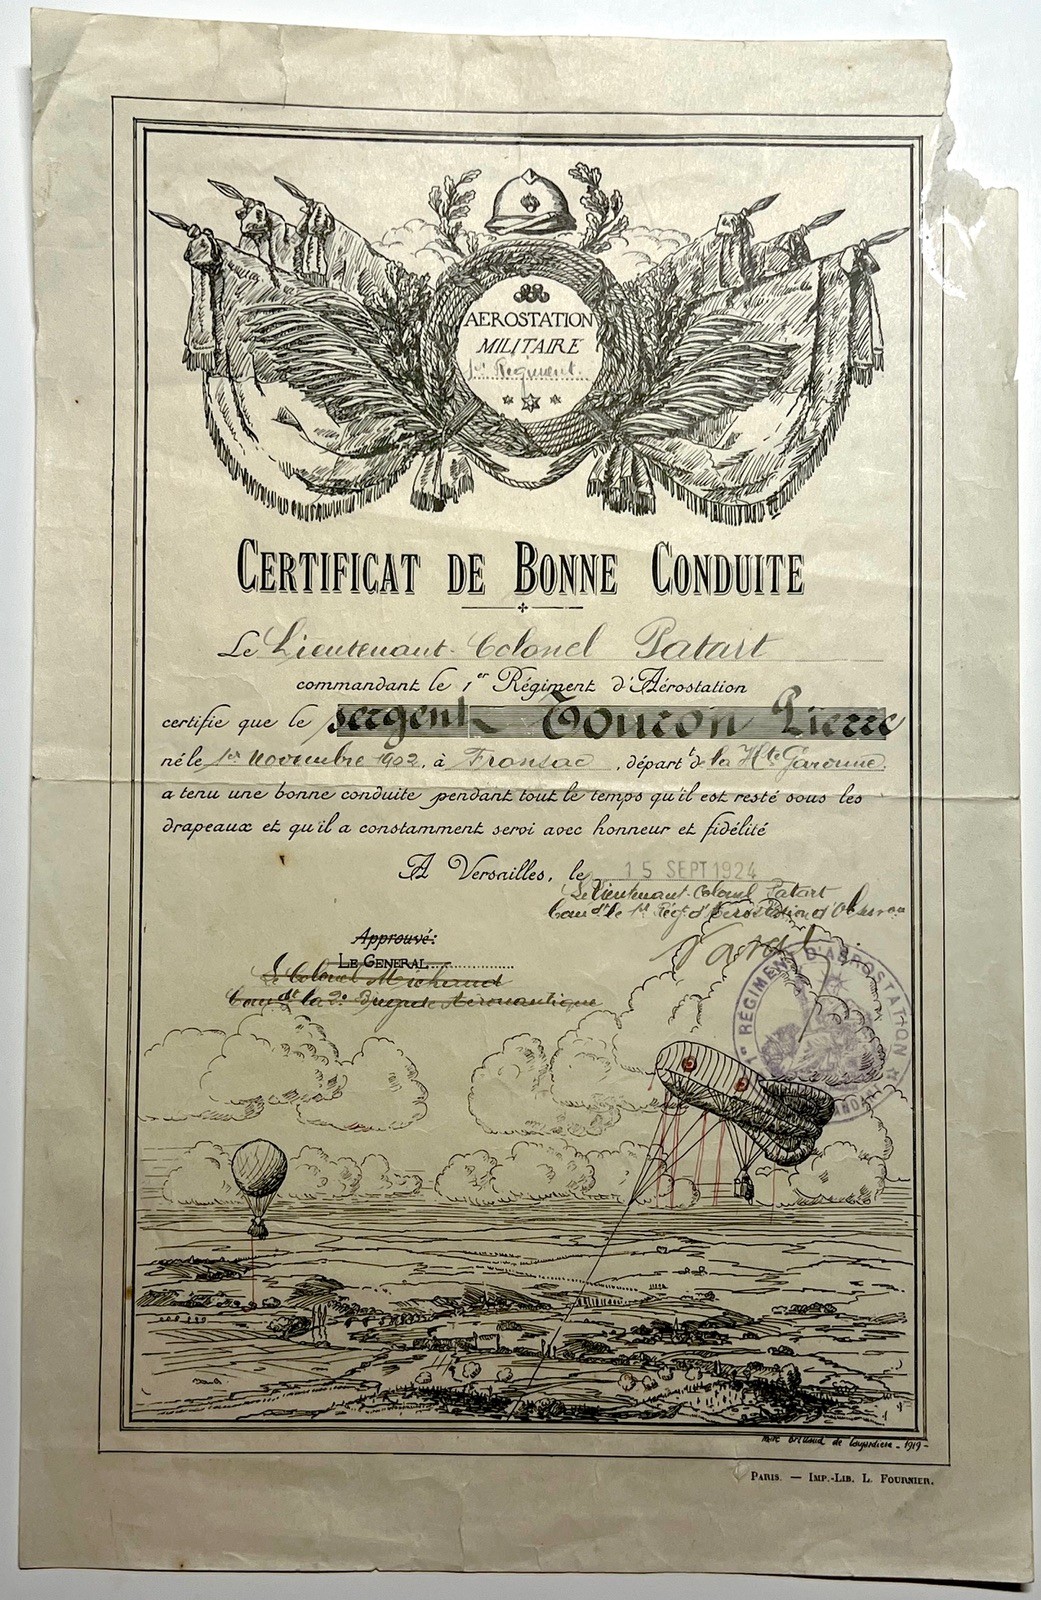 AEROSTATION
MILITAIRE
1er Régiment.
CERTIFICAT DE BONNE CONDUITE
Le Lieutenant-Colonel Patart
commandant le 1er Régiment d'Aérostation
certifie que le sergent Touron Pierre
né le 1er Novembre 1902, à Fronsac, départt de la Hte Garonne,
a tenu une bonne conduite pendant tout le temps qu'il est resté sous les
drapeaux et qu'il a constamment servi avec honneur et fidélité
A Versailles, le 15 SEPT 1924
Le Lieutenant-Colonel Patart
Comdt le 1er Régt d'Aérostation d'Observon
Patart
Approuvé:
LE GÉNÉRAL
Le Colonel
Comdt la 2e Brigade Aéronautique
1er RÉGIMENT D'AÉROSTATION
1919
PARIS. — IMP.-LIB. L. FOURNIER.